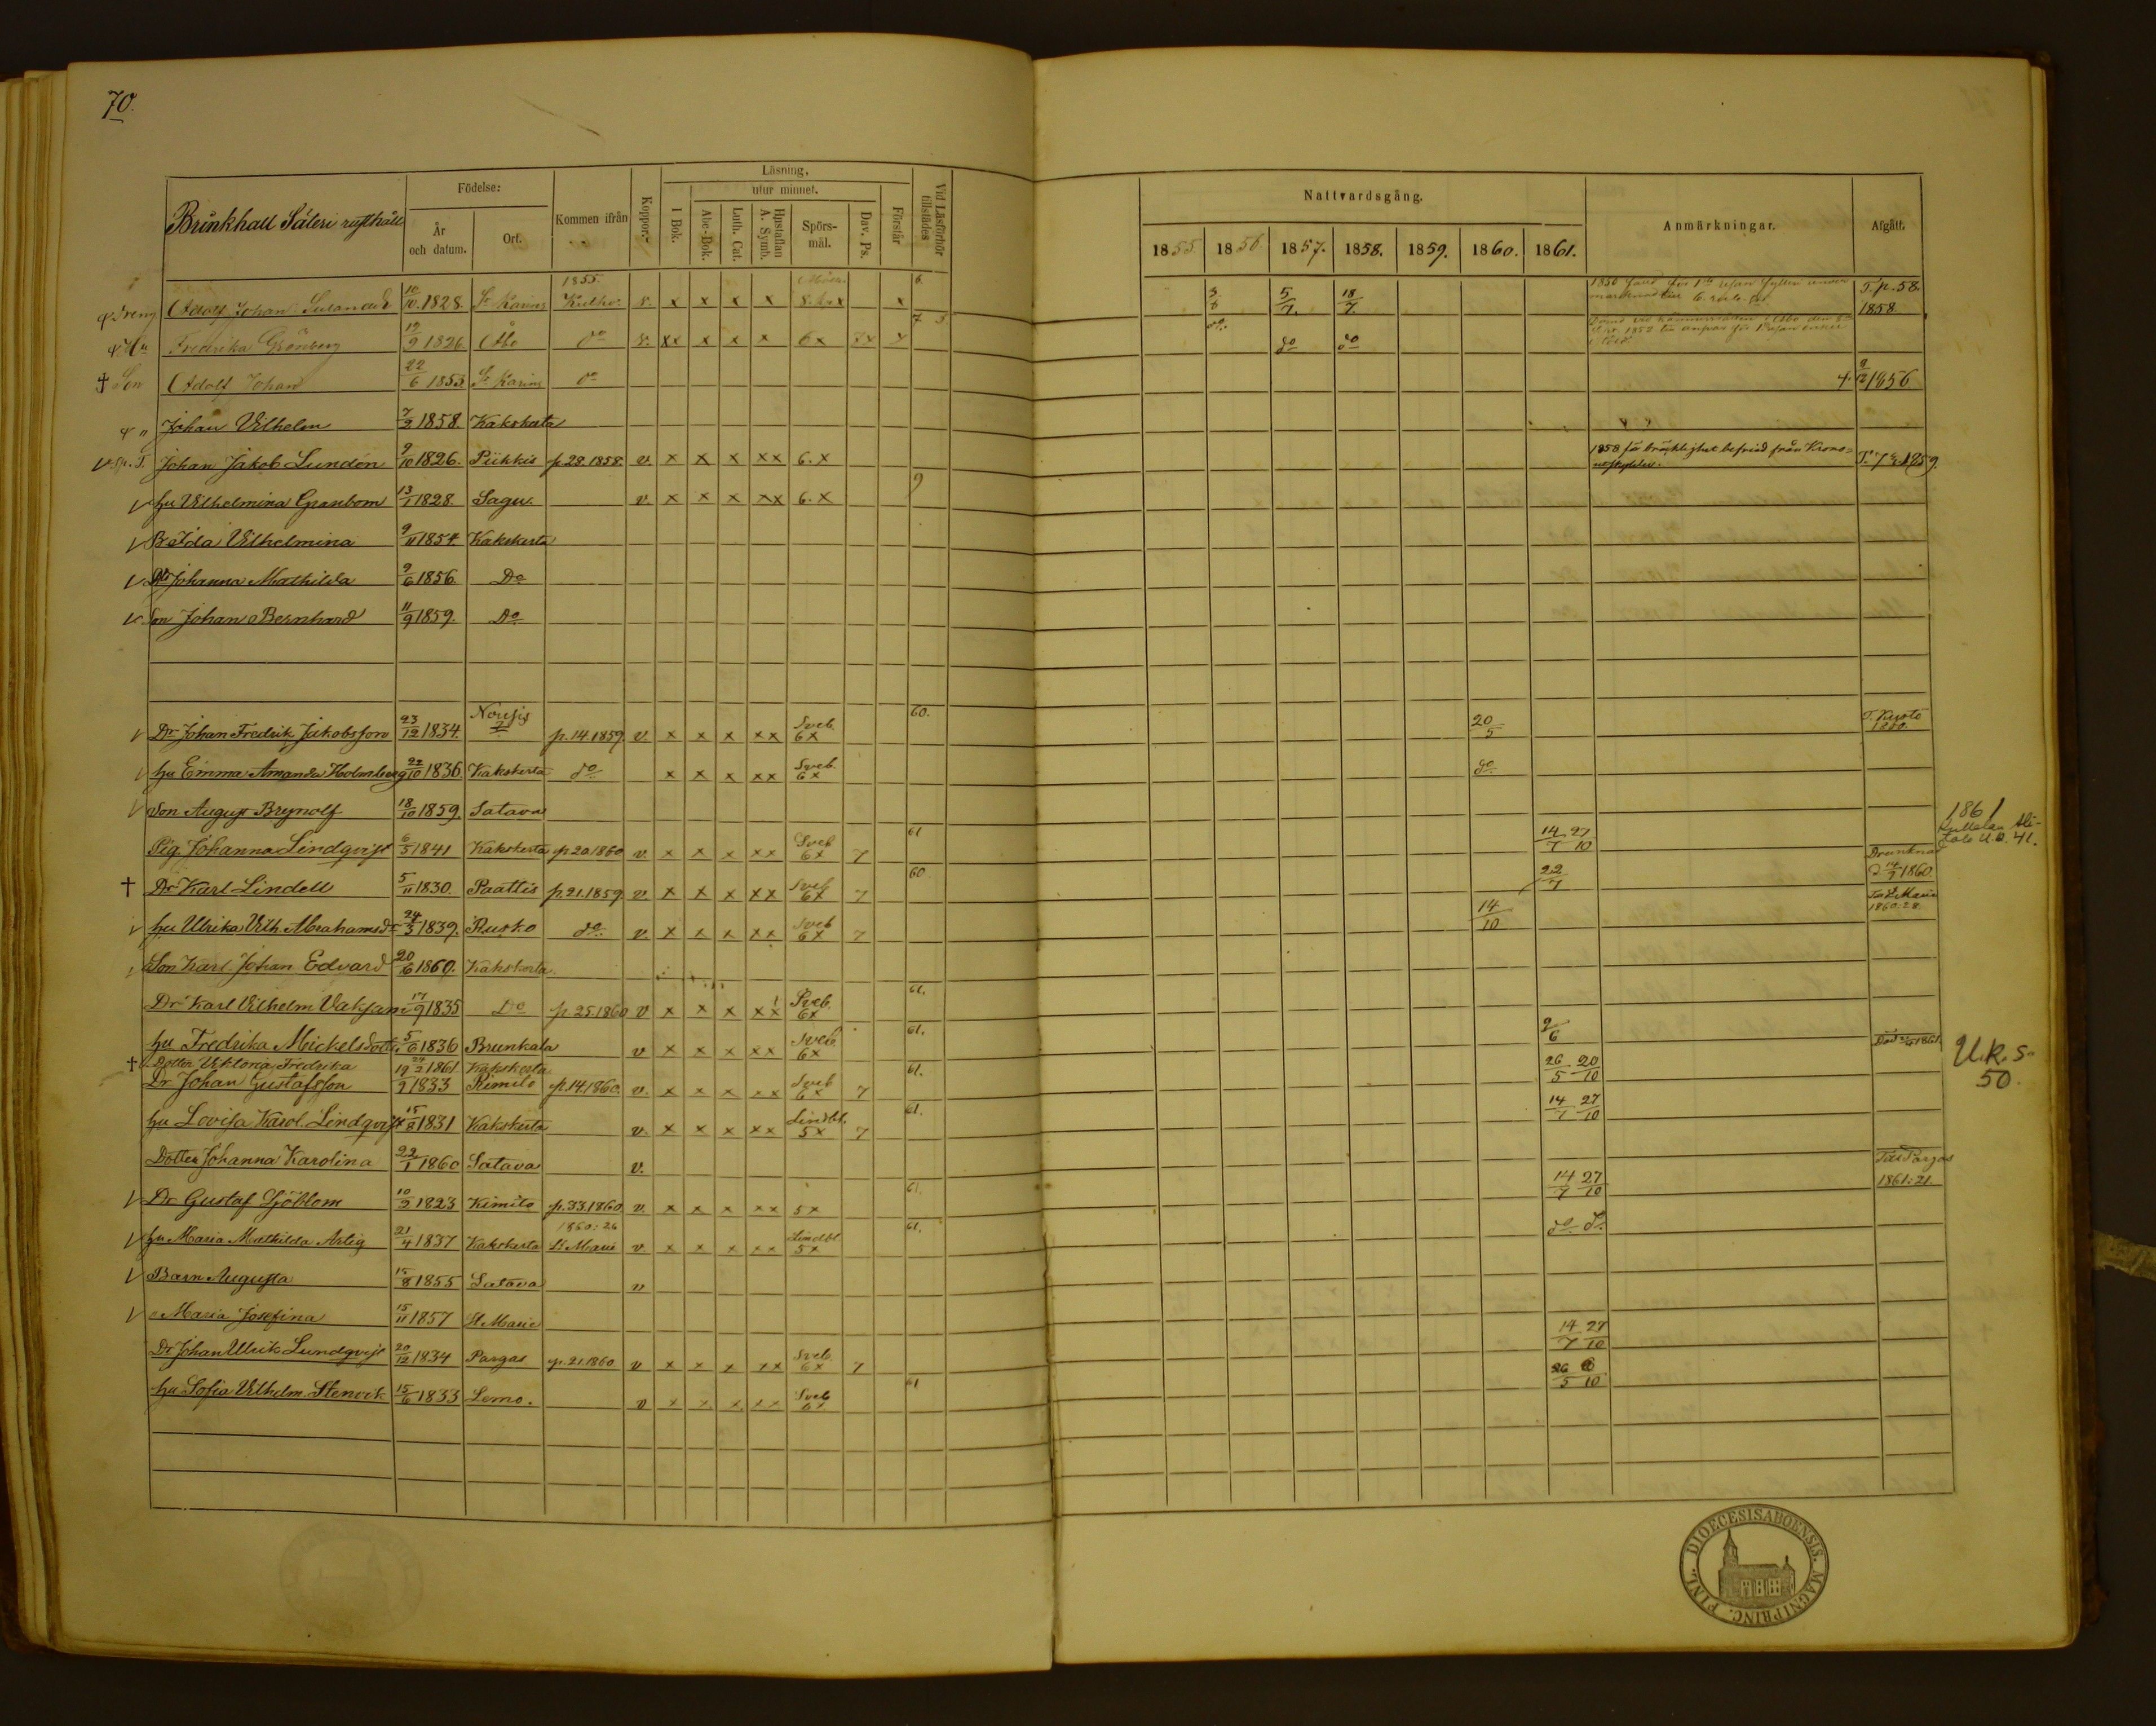 70.
Brinkhall Säteri rusthåll
Födelse:
År och datum.
Ort.
Kommen ifrån
Koppor.
Läsning,
utur minnet.
I Bok.
Abc-Bok.
Luth. Cat.
Hustaflan A. Symb.
Spörs-mål.
Dav. Ps.
Förstår
Vid Läsförhör tillstädes
Nattvardsgång.
1855. 1856. 1857. 1858. 1859. 1860. 1861.
Anmärkningar.
Afgått.
Dreng Adolf Johan 10/10 1828. St Karins 1855 v. x x x x x 6. 5/7. 18/7. T. p. 58. 1858.
Hu Fredrika Grönberg 19/9 1826 Åbo do v. xx x x x 6x 7x do do do
† Son Adolf Johan 22/6 1853 St Karins do 1856
" Johan Vilhelm 7/2 1858. Kakskerta
Johan Jakob Lundén 9/10 1826. Piikkis p. 28. 1858. v. x x x xx 6. x 1858 för bräcklighet befriad från 1859.
hu Vilhelmina Granbom 13/1 1828. Sagu. v. x x x xx 6. x 9
Ida Vilhelmina 9/11 1854. Kakskerta
Dr Johanna Mathilda 9/6 1856. Do
Son Johan Bernhard 11/9 1859. Do
Dr Johan Fredrik Jakobsson 23/12 1834. Nousis p. 14 1859. v. x x x xx Sveb. 6x 60. 20/5 T. Kustö 1860.
hu Emma Amanda Holmberg 22/10 1836. Kakskerta do x x x xx Sveb. 6x do
Son August Brynolf 18/10 1859. Satava
Pig. Johanna Lindqvist 6/5 1841 Kakskerta p. 20 1860 v. x x x xx Sveb 6x 7 61 14/7 27/10 1861 U.B. 41.
† Dr Karl Lindell 5/11 1830. Paattis p. 21. 1859. v. x x x xx Sveb 6x 7 60 22/7 Drunknad d 14/7 1860.
hu Ulrika Vilh. Abrahamsdr 24/3 1839. Rusko do v. x x x xx Sveb 6x 7 14/10 St Marie 1860: 28.
Son Karl Johan Edvard 20/6 1860. Kakskerta
Dr Karl Vilhelm 17/9 1835 Do p. 25 1860 v x x x xx Sveb. 6x 61.
hu Fredrika Mickelsdotter 5/6 1836 Brunkala v x x x xx Sveb 6x 61. 9/6
† Dotter Viktoria Fredrika 24/2 1861. Kakskerta Död 1861.
Dr Johan Gustafsson 19/9 1833 Rimito p. 14. 1860. v. x x x xx Sveb 6x 7 61. 26/5 20/10 U.K. s. 50.
hu Lovisa Karol. Lindqvist 15/8 1831 Kakskerta v. x x x xx Lindbl. 5x 7 61. 14/7 27/10
Dotter Johanna Karolina 22/1 1860 Satava v.
Dr Gustaf Sjöblom 10/2 1823 Kimito p. 33. 1860 v. x x x xx 5x 61. 14/7 27/10 Till Pargas 1861: 21.
hu Maria Mathilda Artig 21/4 1837 Kakskerta 1860: 26 St Marie v x x x xx Lindbl 5x 61. do do
Barn Augusta 15/8 1855 Satava v
" Maria Josefina 15/11 1857 St Marie
Dr Johan Ulrik Lundqvist 20/12 1834 Pargas p. 21. 1860 v x x x xx Sveb. 6x 7 14/7 27/10
hu Sofia Vilhelm. Stenvik 15/6 1833 Lemo. v x x x xx Sveb 6x 61 26/5
DIOECESIS ABOENSIS. MAGNI PRINC. FINL.